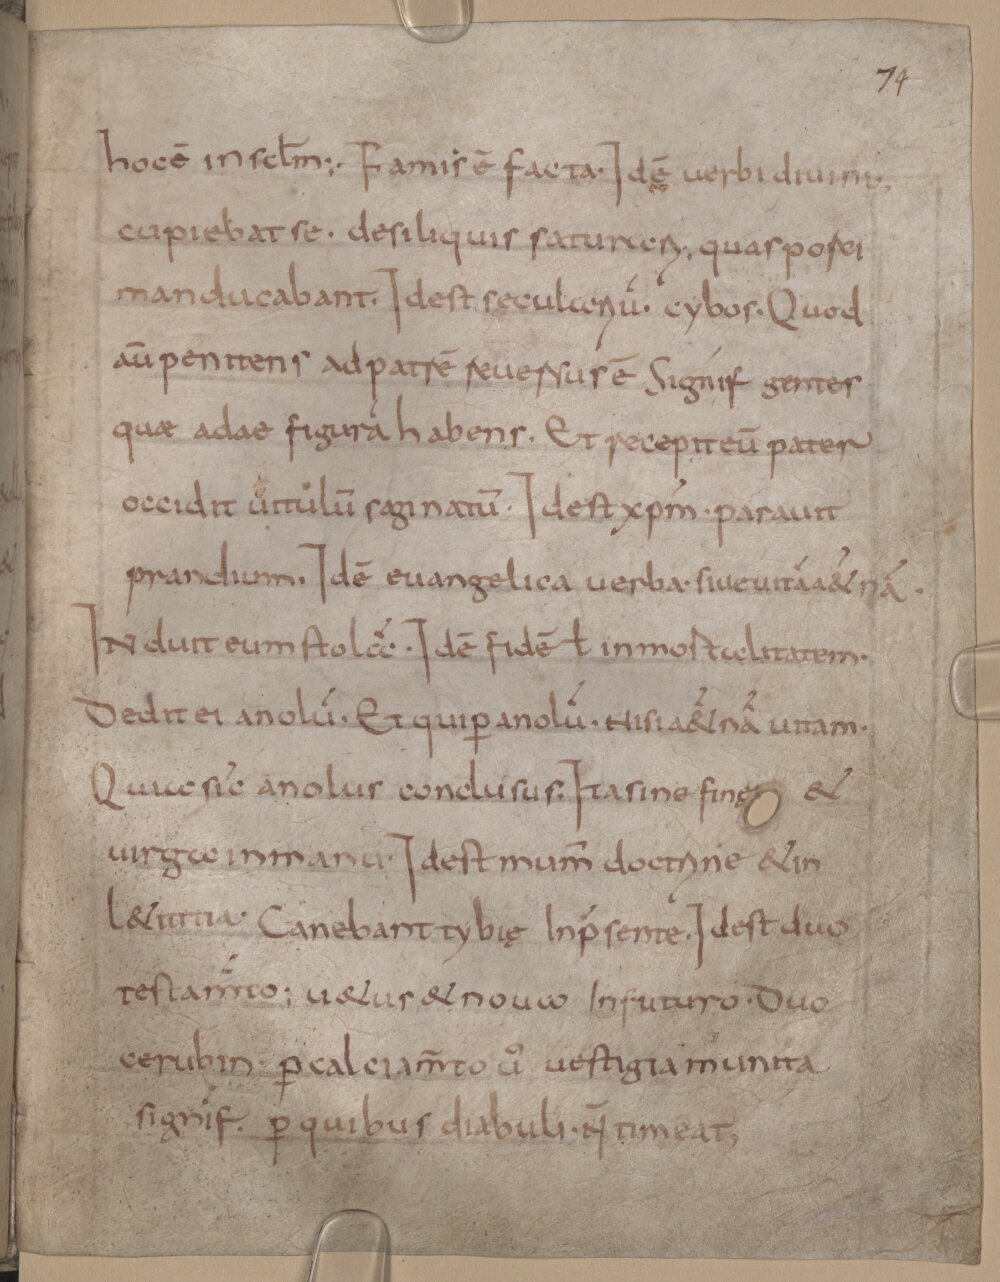 74
hocē in sclm̄;. Famis ē facta. Idē verbi divini;,
cupiebat se. desiliquis saturari, quas porci
manducabant. Idest secularιū. cybos. Quod
aū penitens ad patrē reversus ē Signif gentes
quae adae figurā habens. Et recepit eū pater
occidit vitulū saginatū. Idest xpm̄. paravit
prandium. Idē evangelica verba. sive vitā a&nā.
Induit eum stolā. Idē fidē ł inmortalitatem.
Dedit ei anolū. Et qui ꝑ anolū. nisi a&nā vitam.
Quia sič anolus conclusus. Ita sine fine &
virga in manu. Idest mum̄ doctrine & in
l&itia. Canebant tybię In p̄sente. Idest duo
testam̄ta; v&us & novū In futuro. Duo
cerubin. ꝑ calciam̄to ů vestigia munita
signif. ꝑ quibus diabuli. n̄ timeat;